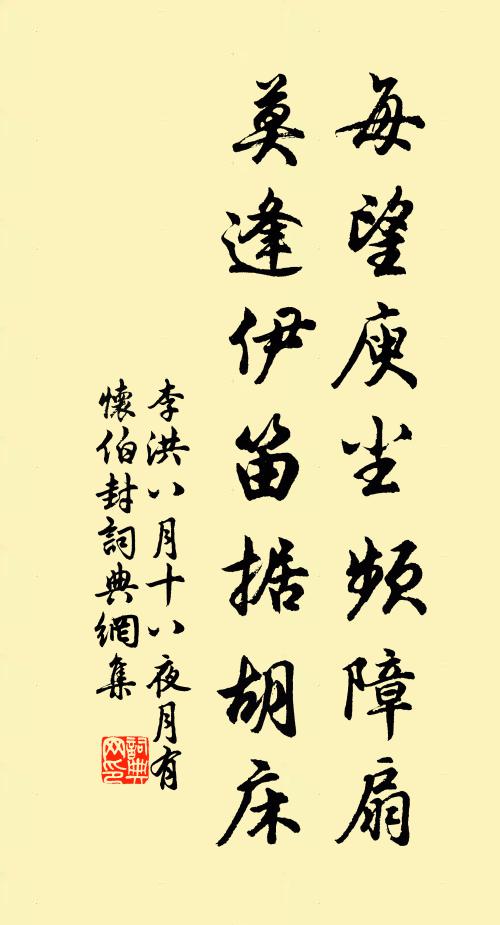 每望庾尘频障扇
莫逢伊笛据胡床
李洪八月十八夜月有
懷伯封詞典網集
詞典
网印